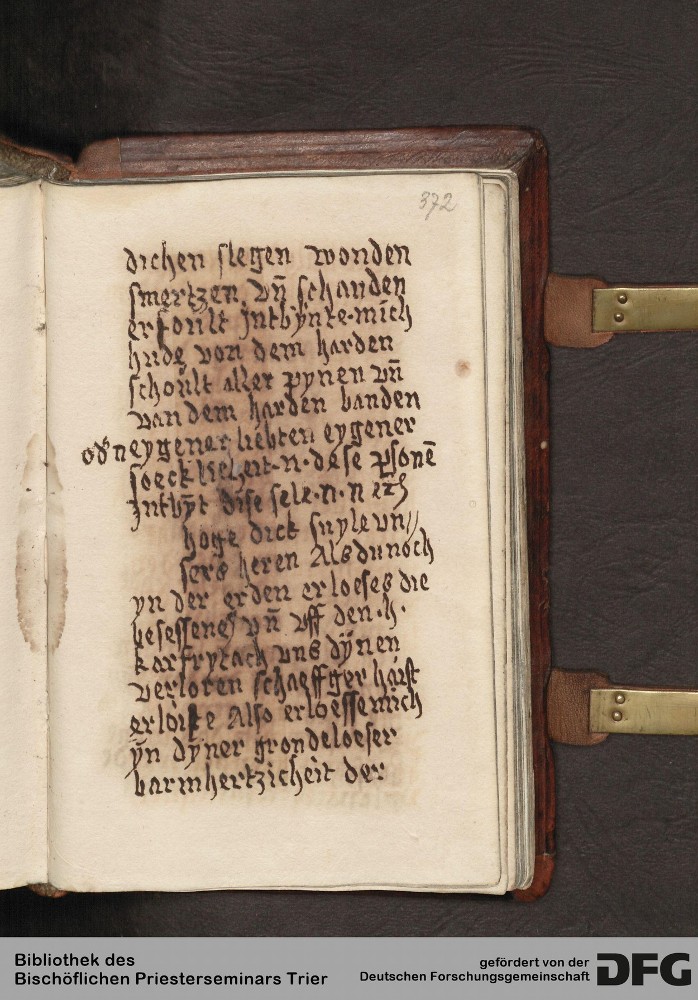 372
dichen slegen wonden
smertzen vn̄ schanden
erfoult Intbynte mich
hude von dem harden
schoult aller pynen vn̄
van dem harden banden
od̕ n eygener liebten eygener
soeck licheit · n · dese ꝑsonē
Intbȳt dise sele · n · n
hoge dich suyle vn//
sers heren Als du noch
yn der erden erloeses die
besessene vn̄ vff den · h ·
karfrytach vns dÿnen
verloren schaeffger haist
erloiste Also erloesse mich
ÿn dyner grondeloeser
barmhertzicheit der
Bibliothek des
Bischöflichen Priesterseminars Trier
gefördert von der
Deutschen Forschungsgemeinschaft
DFG